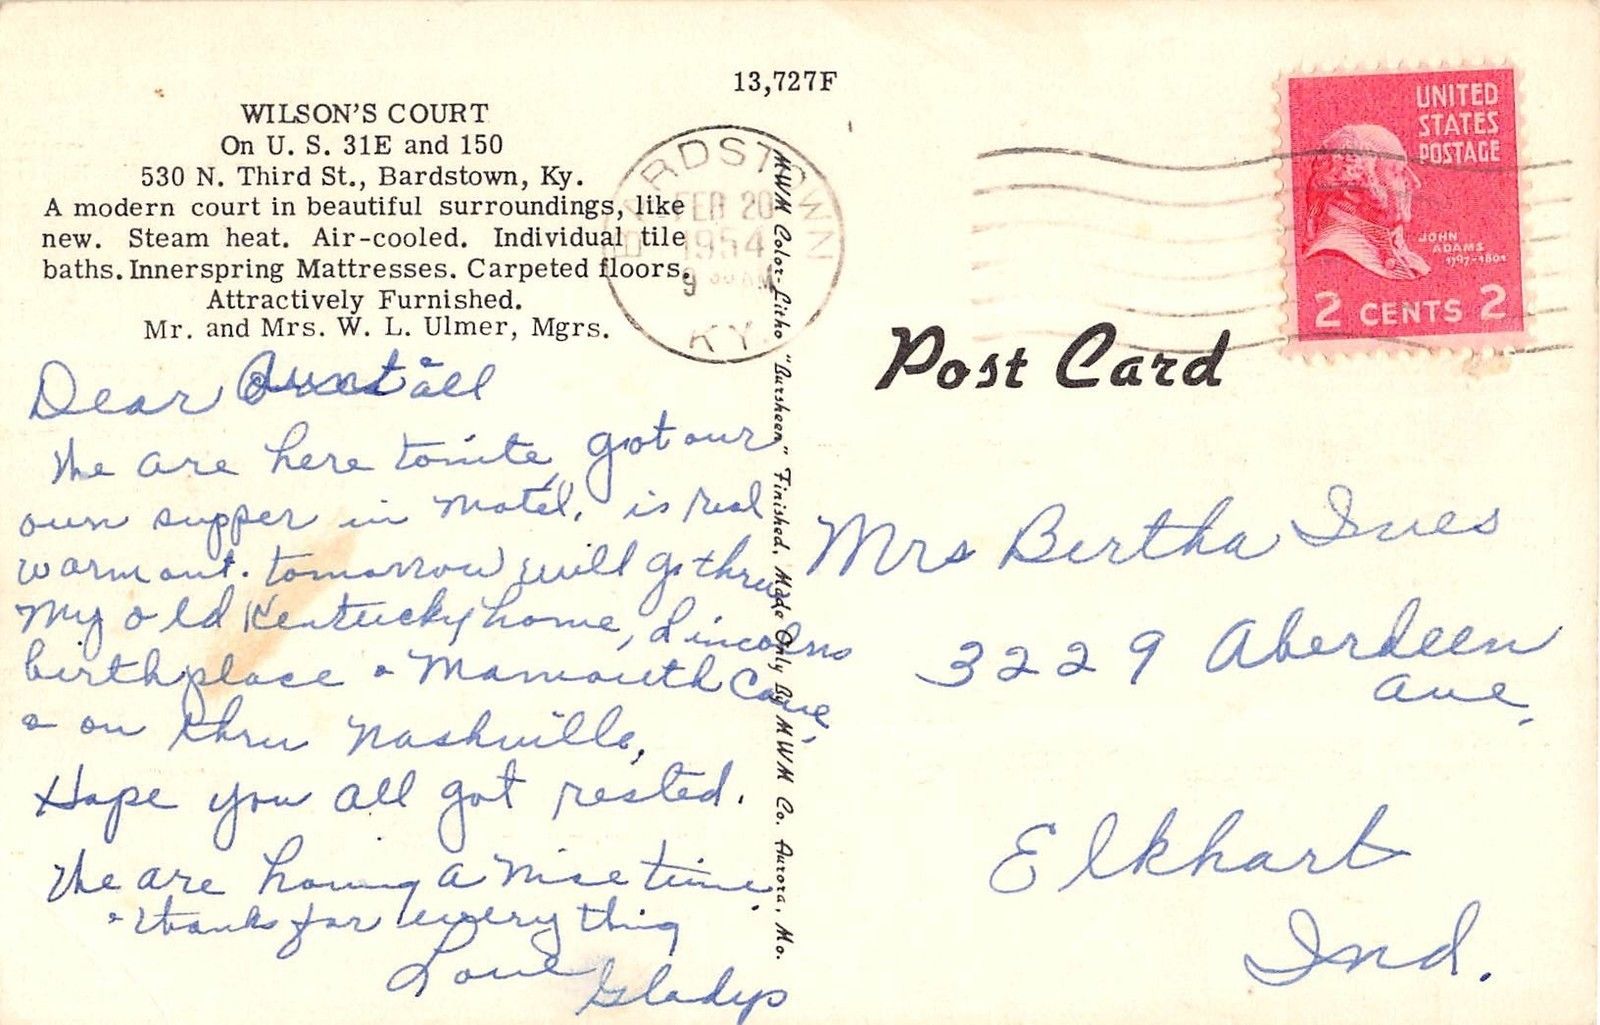 13,727F
WILSON'S COURT
On U. S. 31E and 150
530 N. Third St., Bardstown, Ky.
A modern court in beautiful surroundings, like
new. Steam heat. Air-cooled. Individual tile
baths. Innerspring Mattresses. Carpeted floors.
Attractively Furnished.
Mr. and Mrs. W. L. Ulmer, Mgrs.
BARDSTOWN
FEB 20
1954
9 AM
KY.
UNITED
STATES
POSTAGE
JOHN
ADAMS
1797-1801
2 CENTS 2
Post Card
MWM Color-Litho "Bursheen" Finished, Made Only By MWM Co. Aurora, Mo.
Dear Aunt & all
We are here tonite, got our
own supper in motel, is real
warm out. tomorrow will go thru
My old Kentucky home, Lincolns
birthplace & Mamouth Cave,
& on thru Nashville,
Hope you all got rested.
We are having a nice time.
& thanks for every thing
Love Gladys
Mrs Bertha Ives
3229 Aberdeen
Ave,
Elkhart
Ind.